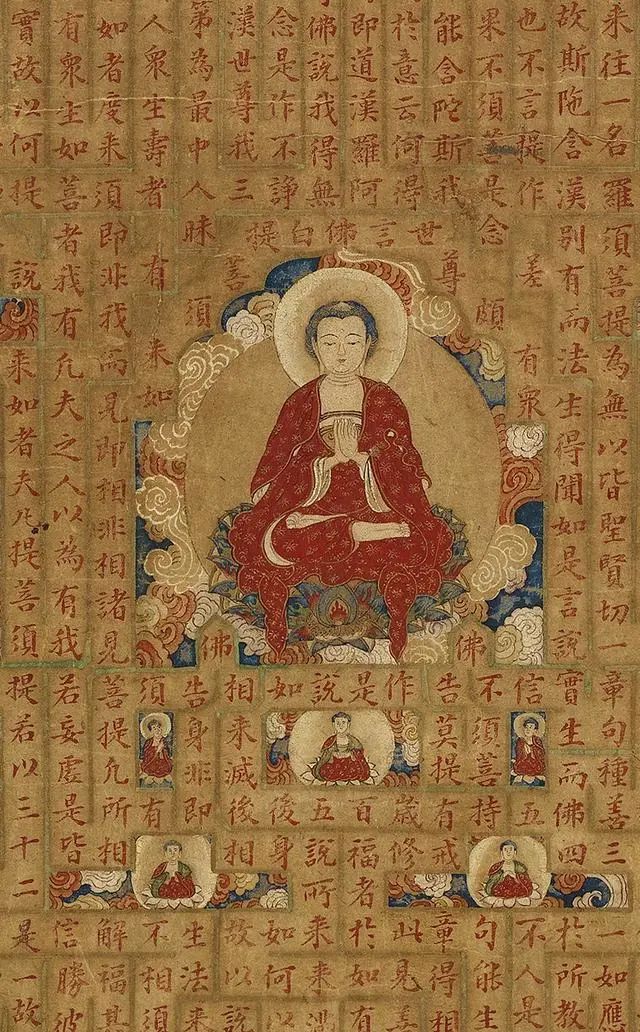 来往一名羅須菩提為無以皆聖賢切一章句種善三一如應
故斯陁含漢別有而法生得聞如是言說實生而佛四於所教
也不言提作差有衆
果不須菩是念頗
能含陀斯我
於意云何得
即道漢羅阿
佛說我得無
念是作不諍
漢世尊我三
第為最中人昧須
世言佛白提
尊
菩
佛
佛
信五不人是
不須菩持句能生
告莫提有戒章得相
作歲修此見善
是百福者於如有
說五說所来来
如後身如何以
相来滅後相故以說
告身非即生法来
人衆生壽者有来如須有不相須
如者度来須即非我而見即相非相諸見菩提凢所相解福甚
有衆生如菩者我有凢夫之人以為有我若妄處是皆信勝彼
實故以何提說来如者夫凢提菩須提若以三十二是一故